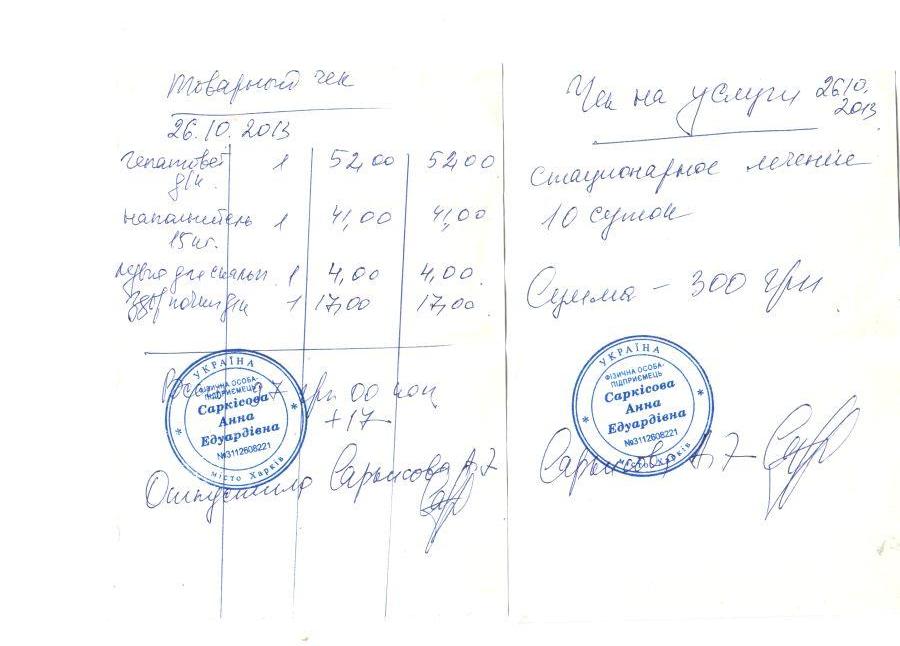 Товарный чек
26.10.2013
гепатовет 1 52,00 52,00
д/к.
наполнитель 1 41,00 41,00
15кг.
1 4,00 4,00
почки д/к 1 17,00 17,00
грн 00 коп
+17
Отпустила Саркисова А.Э
УКРАЇНА
ФІЗИЧНА ОСОБА-
ПІДПРИЄМЕЦЬ
Саркісова
Анна
Едуардівна
№3112608221
місто Харків
Чек на услуги 26.10.
2013
стационарное лечение
10 суток
Сумма - 300 грн
УКРАЇНА
ФІЗИЧНА ОСОБА-
ПІДПРИЄМЕЦЬ
Саркісова
Анна
Едуардівна
№3112608221
місто Харків
Саркисова А.Э